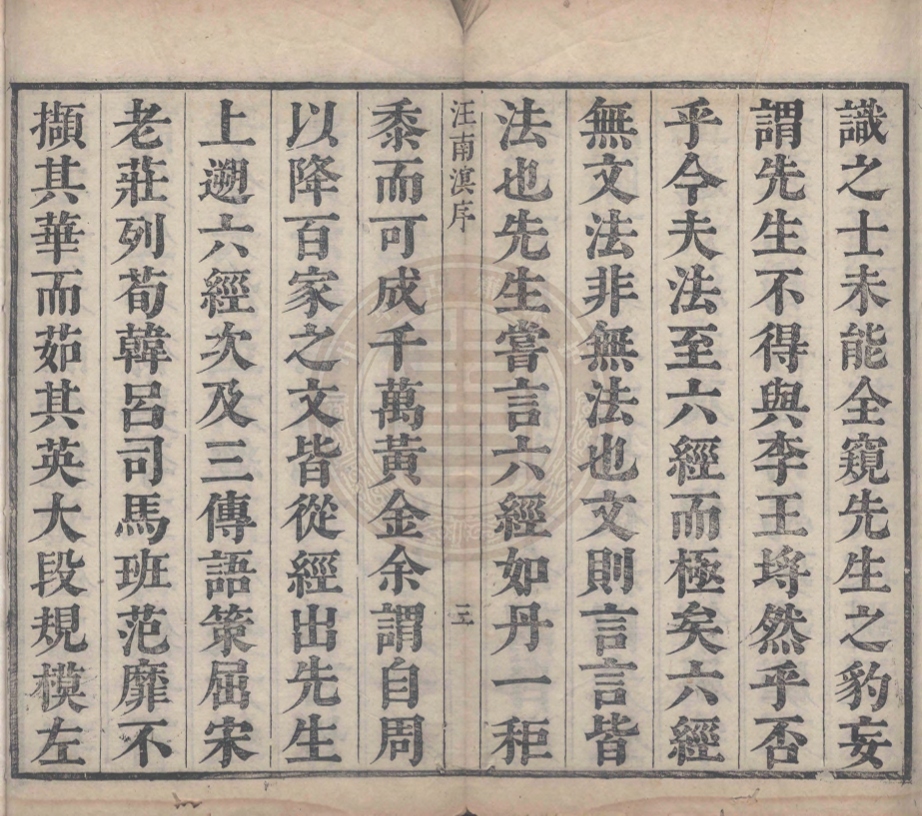 識之士未能全窺先生之豹妄
謂先生不得與李王埒然乎否
乎今夫法至六經而極矣六經
無文法非無法也文則言言皆
法也先生嘗言六經如丹一秬
汪南溟序
三
黍而可成千萬黃金余謂自周
以降百家之文皆從經出先生
上遡六經次及三傳語策屈宋
老莊列荀韓呂司馬班范靡不
擷其華而茹其英大段規模左